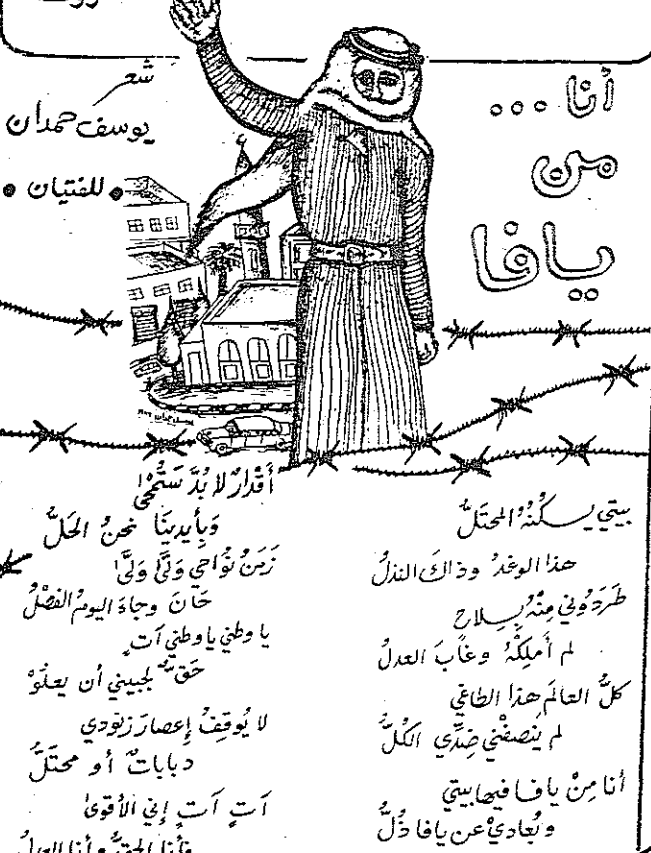 أنا ...
من
يافا
شعر
يوسف حمدان
• للفتيان •
بيتي يسكُنُهُ المحتَلُّ
هذا الوغدُ وذاكَ النذلُ
طَرَدُوني مِنْهُ بِسِلاحٍ
لم أَملِكْهُ وغَابَ العدلُ
كلُّ العالَمِ هذا الطاغي
لم يُنْصِفْني ضِدِّي الكُلُّ
أنا مِنْ يافا فيها بيتي
وبُعادي عن يافا ذُلُّ
أَقْدَارٌ لا بُدَّ سَتُمْحَى
وَبِأَيدِينَا نحنُ الحَلُّ
زَمَنُ نُوَاحي وَلَّى وَلَّى
حَانَ وجاءَ اليومُ الفَصْلُ
يا وطني يا وطني آتٍ
حَقٌّ لجبيني أن يعلُوْ
لا يُوقِفُ إعصارَ زنودي
دباباتٌ أو محتَلُّ
آتٍ آتٍ إني الأقوى
وأنا الحقُّ وأنا العدلُ